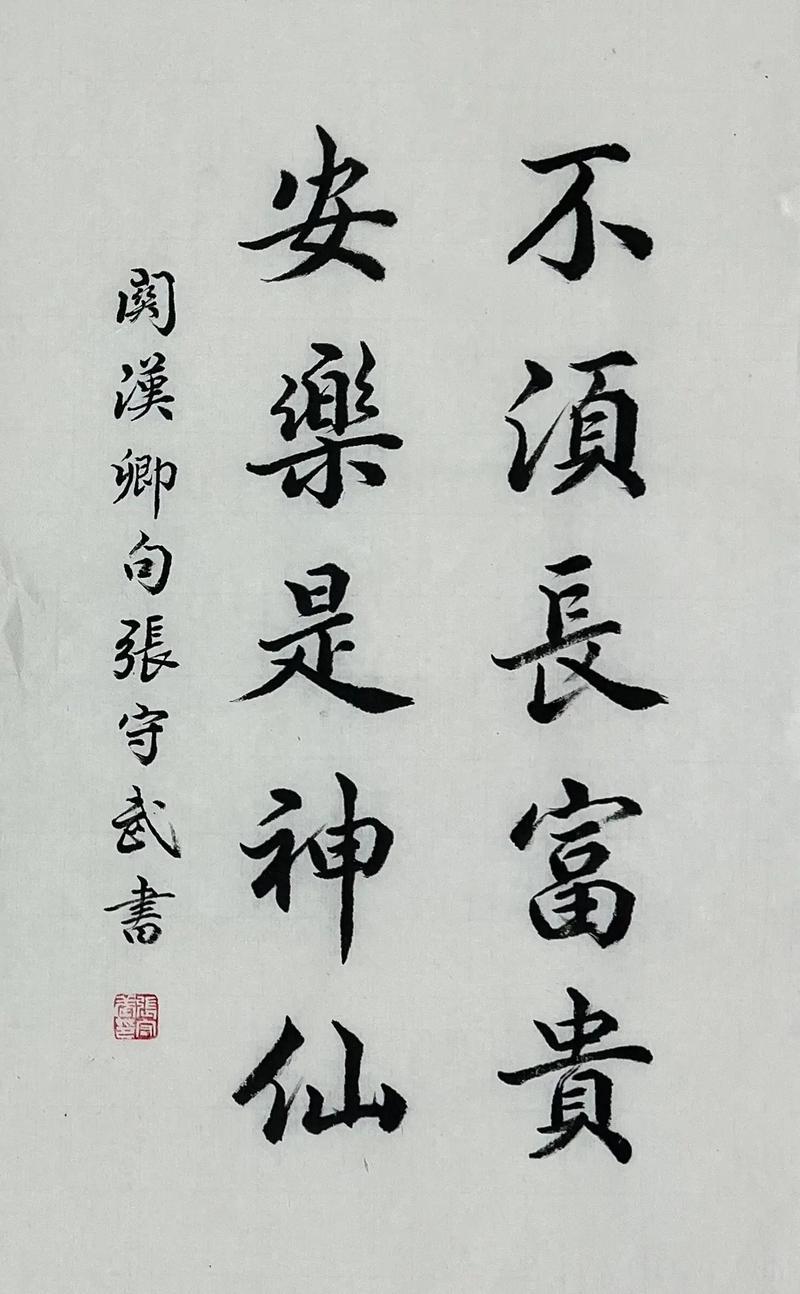 不須長富貴
安樂是神仙
關漢卿句張守武書
張守武印